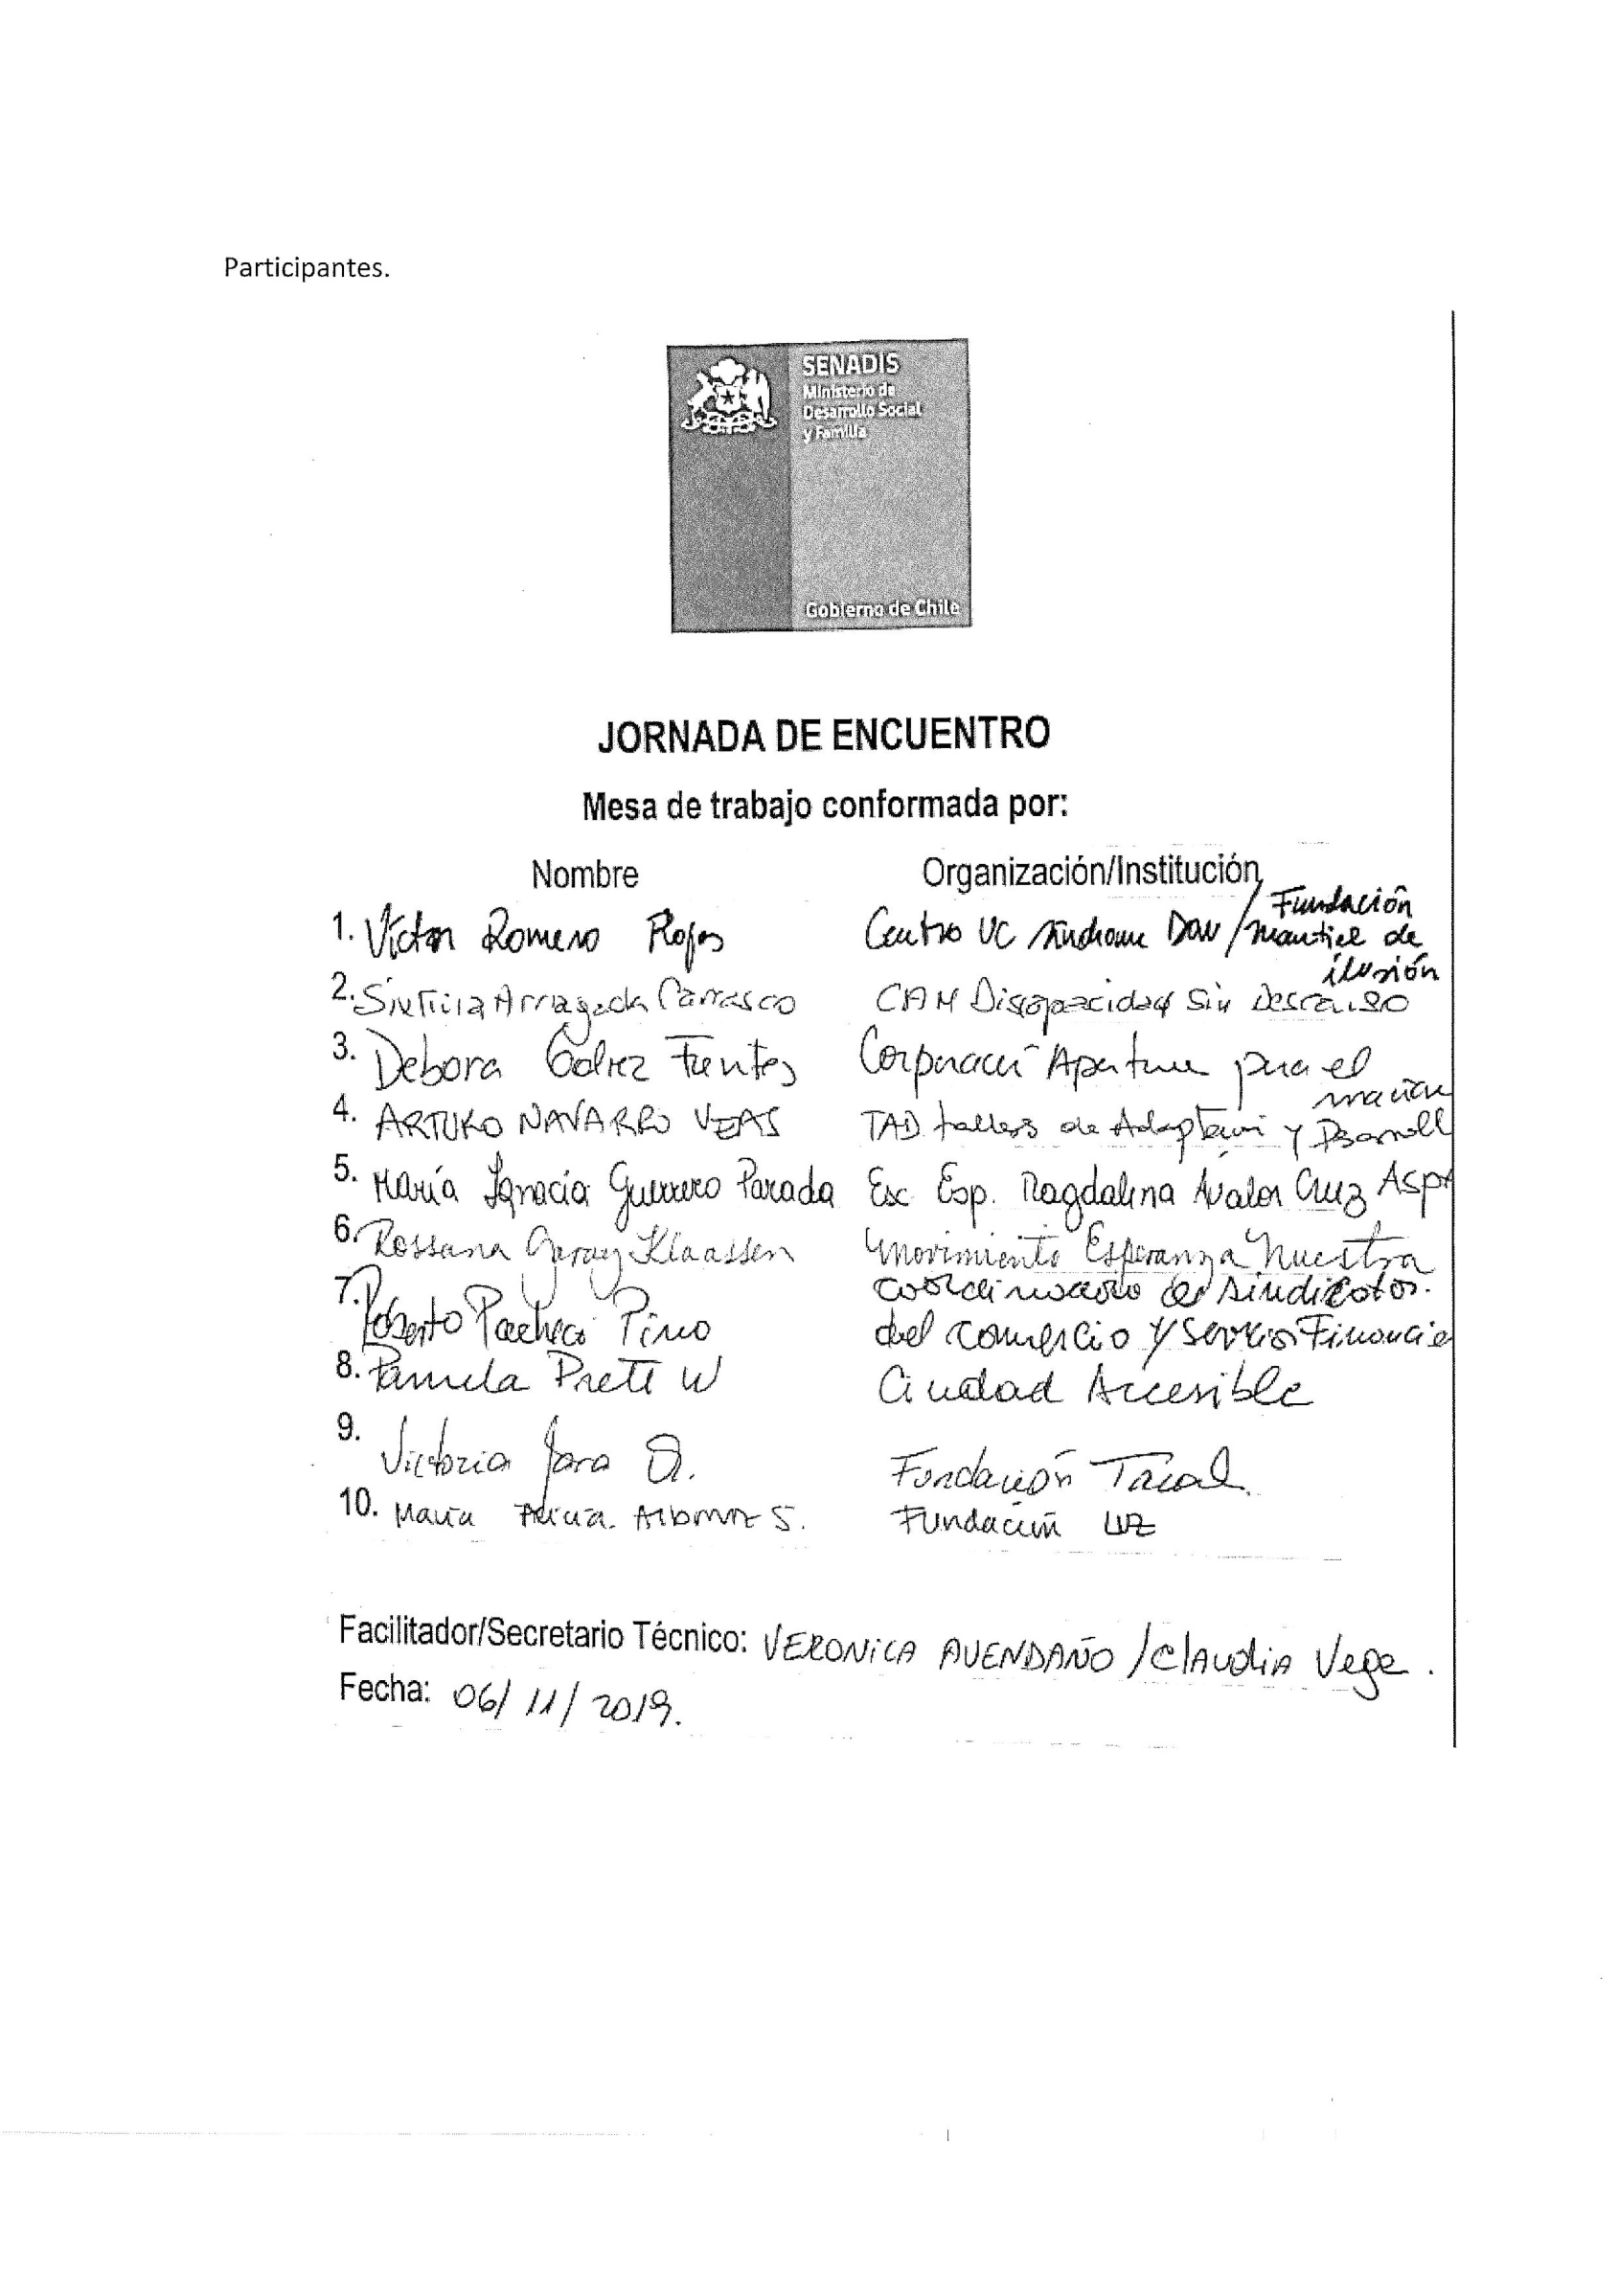 Participantes.
SENADIS
Ministerio de
Desarrollo Social
y Familia
Gobierno de Chile
JORNADA DE ENCUENTRO
Mesa de trabajo conformada por:
Nombre Organización/Institución
1. Víctor Romero Rojas Centro UC Síndrome Down / Fundación
mantiel de
ilusión
2. Arriagada Carrasco CAM Discapacidad Sin Descanso
3. Debora Galvez Fuentes Corporación Apertura para el
4. ARTURO NAVARRO VEAS TAD talleres de Adaptación y Desarroll
5. María Ignacia Guerrero Parada Esc Esp. Magdalena Avalos Cruz
6. Rossana Garay Klaassen movimiento Esperanza Nuestra
7. Roberto Pacheco Pino coordinadora de sindicatos.
del comercio y servicios Financie
8. Pamela Prett W Ciudad Accesible
9. Victoria Jara Fundación Tacal.
10. María Alicia. Albornoz S. Fundación LUZ
Facilitador/Secretario Técnico: VERONICA AVENDAÑO / Claudia Vega.
Fecha: 06/11/2019.